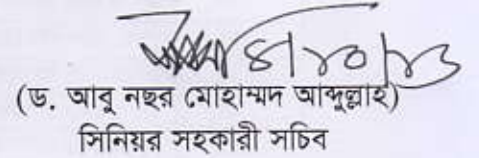 ৪/১০/১৩
(ড. আবু নছর মোহাম্মদ আব্দুল্লাহ)
সিনিয়র সহকারী সচিব